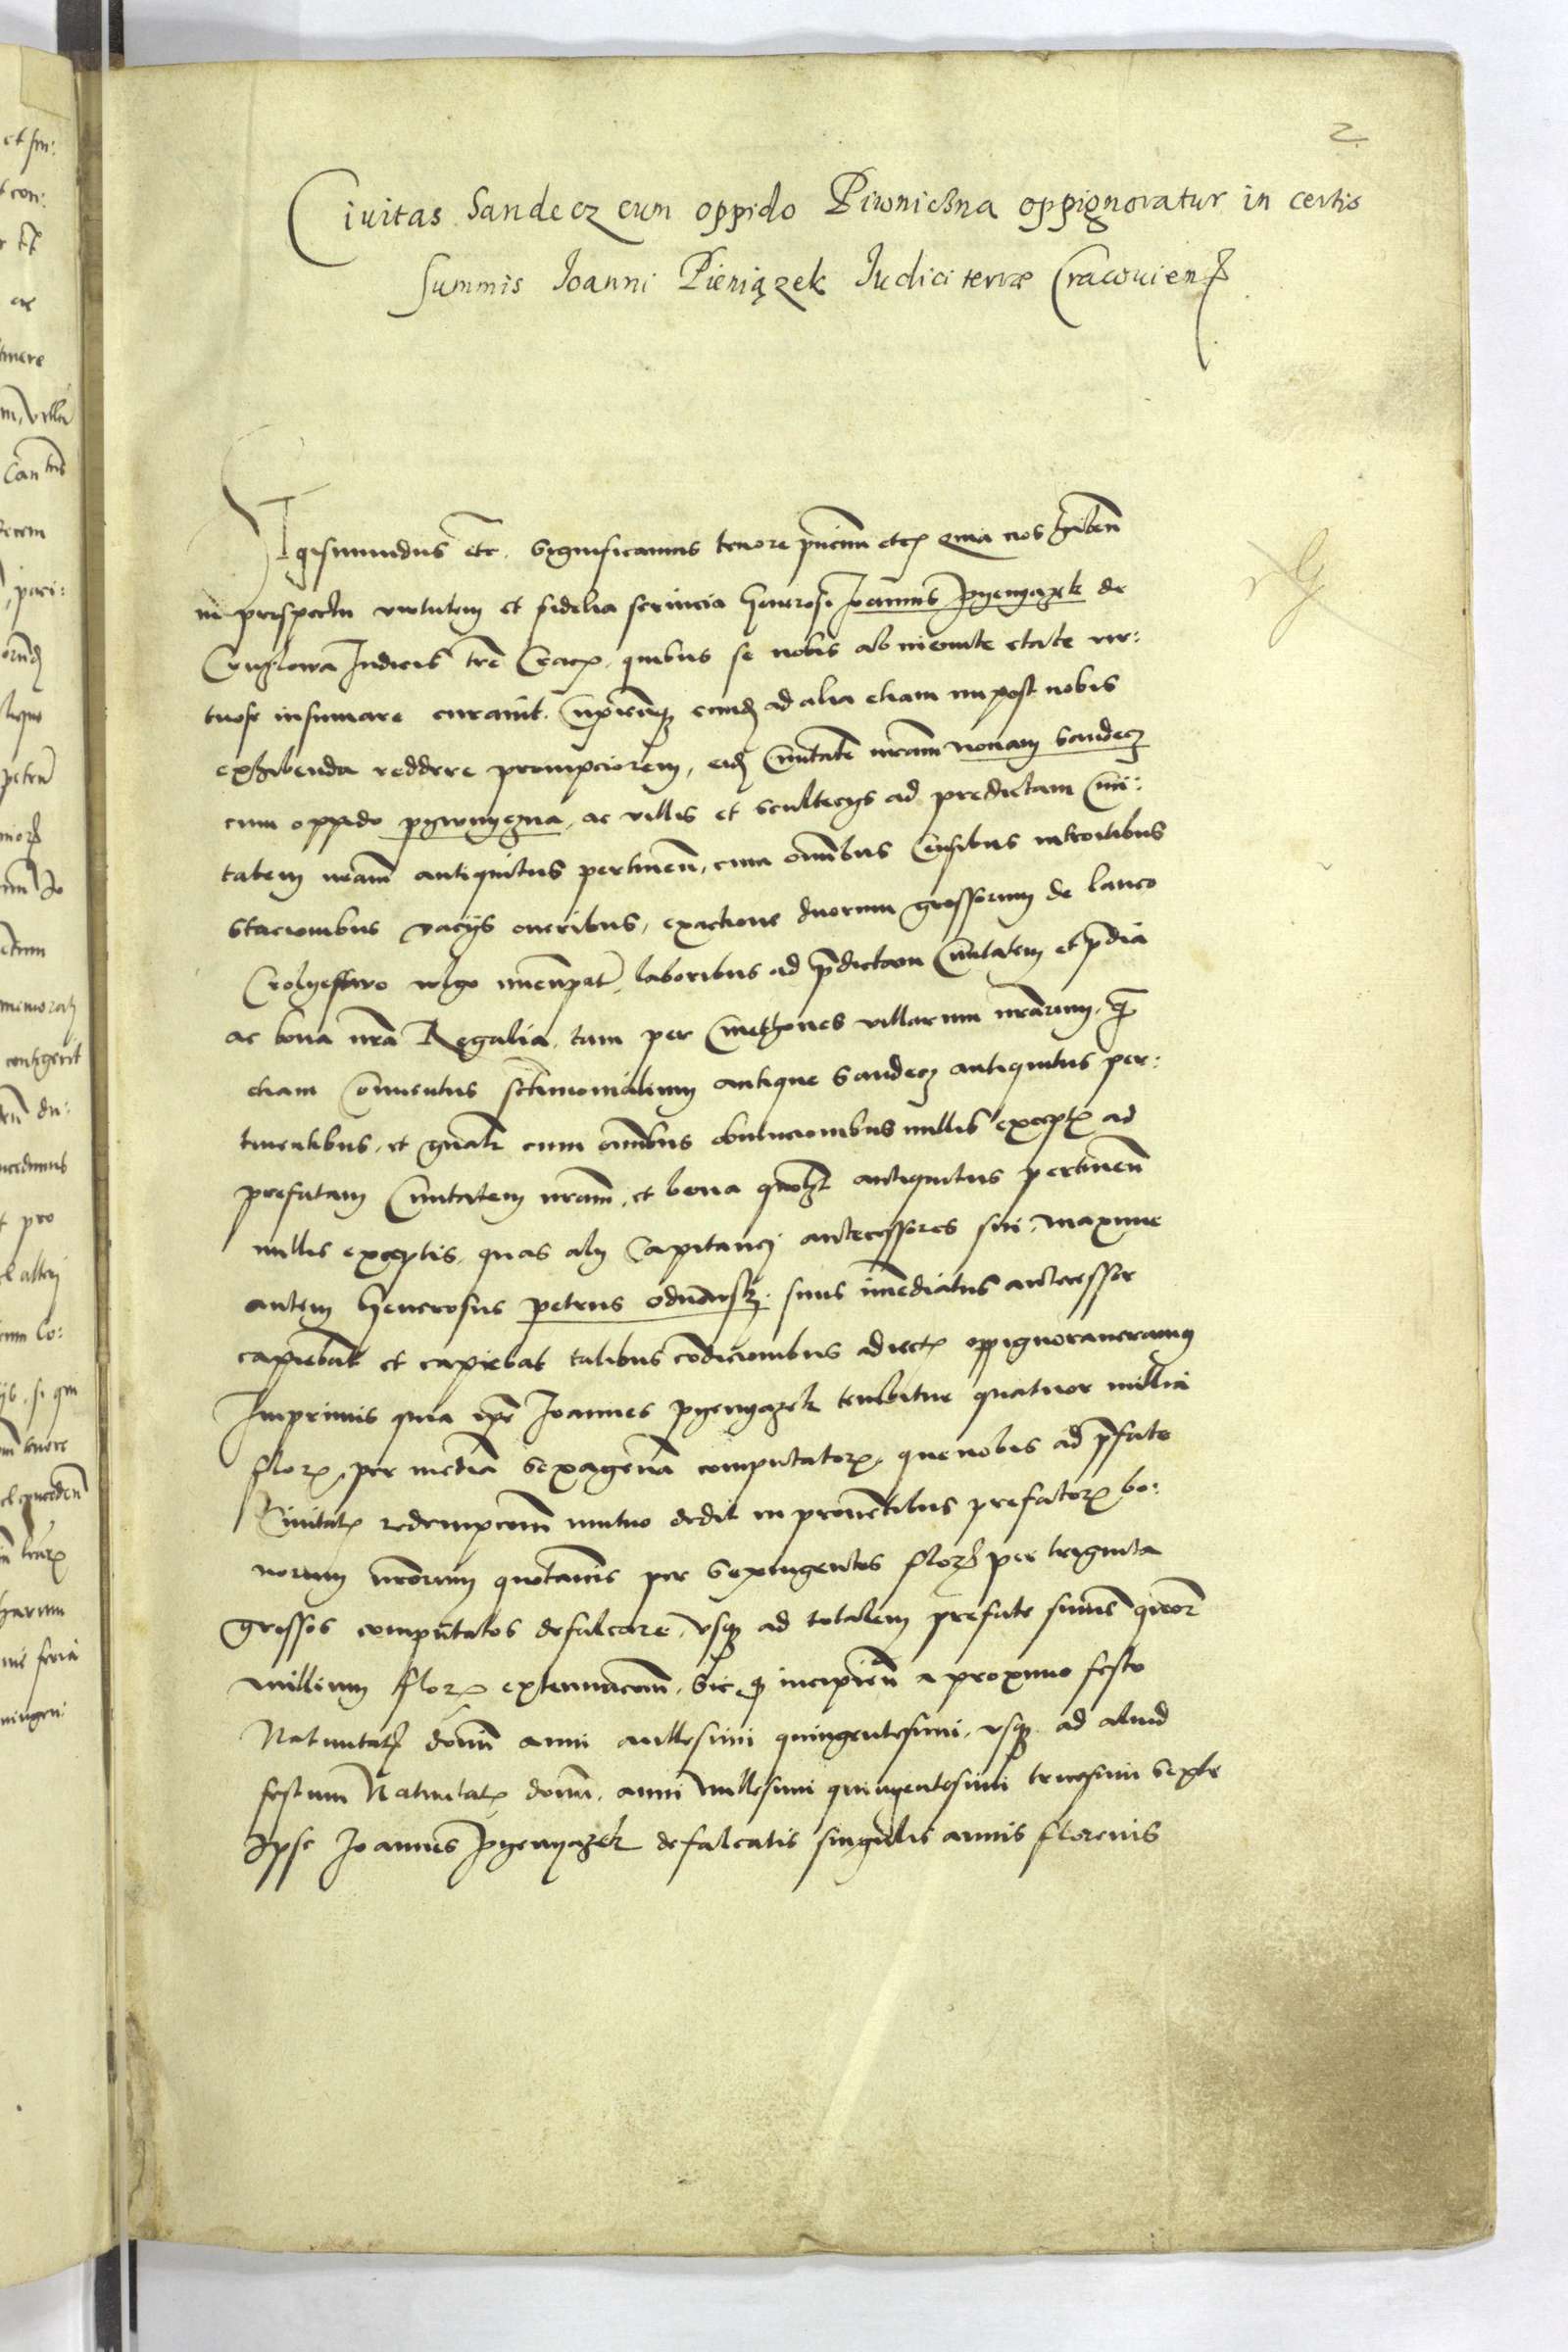 2
Ciuitas Sandecz cum oppido Piwniczna oppignoratur in certis
summis Joanni Pieniązek Judici terræ Cracouien
Sigismundus etc. Significamus tenore pñcium etc Quia nos hñten
in prospectu virtutem et fidelia seruicia Generosi Joannis Pyenyazek de
Cruzlowa Judicis trē Crac, quibus se nobis ab ineunte etate vir:
tuose insinuare curauit. Cupientesq eund ad alia etiam in post nobis
exhibenda reddere prompciorem, eid Ciuitatē nram nouam Sandecz
cum oppido pywnyczna, ac villis et scultecys ad predictam Ciui:
tatem nram antiquitus pertinen, cum omibus Censibus introitibus
stacionibus daciis oneribus, exactione duorum grossorum de laneo
Crolyestwo vlgo nuncupat, laboribus ad pdictam Ciuitatem et pdia
ac bona nra Regalia, tam per Cmethones villarum nrarum, q
etiam Conuentus sctimonialium antique Sandecz antiquitus per:
tinentibus, et gnalr cum omibus obuencionibus nullis except ad
prefatam Ciuitatem nram, et bona quolt antiquitus pertinen
nullis exceptis, quas aly Capitanei antecessores sui, maxime
autem Generosus petrus odnowsky suus imediatus antecessor
capiebat et capiebat talibus condicionibus adiect oppignoraueramus
Imprimis quia ipē Joannes pyenyazek tenebitur quatuor millia
flor, per mediā sexagenā computator, que nobis ad pfate
Ciuitat redempcoem mutuo dedit in prouentibus prefator bo:
norum nrorum quotannis per sexingentos flor per triginta
grossos computatos defalcare, vsq ad totalem prefate sume qtuor
millium flor extenuacoem, Sic q incipien a proximo festo
Natiuitat domi anni millesimi quingentesimi, vsq ad aliud
festum Natiuitat domi, anni millesimi quingentesimi tricesimi sexti
Ipse Joannes Pyenyazek defalcatis singulis annis florenis